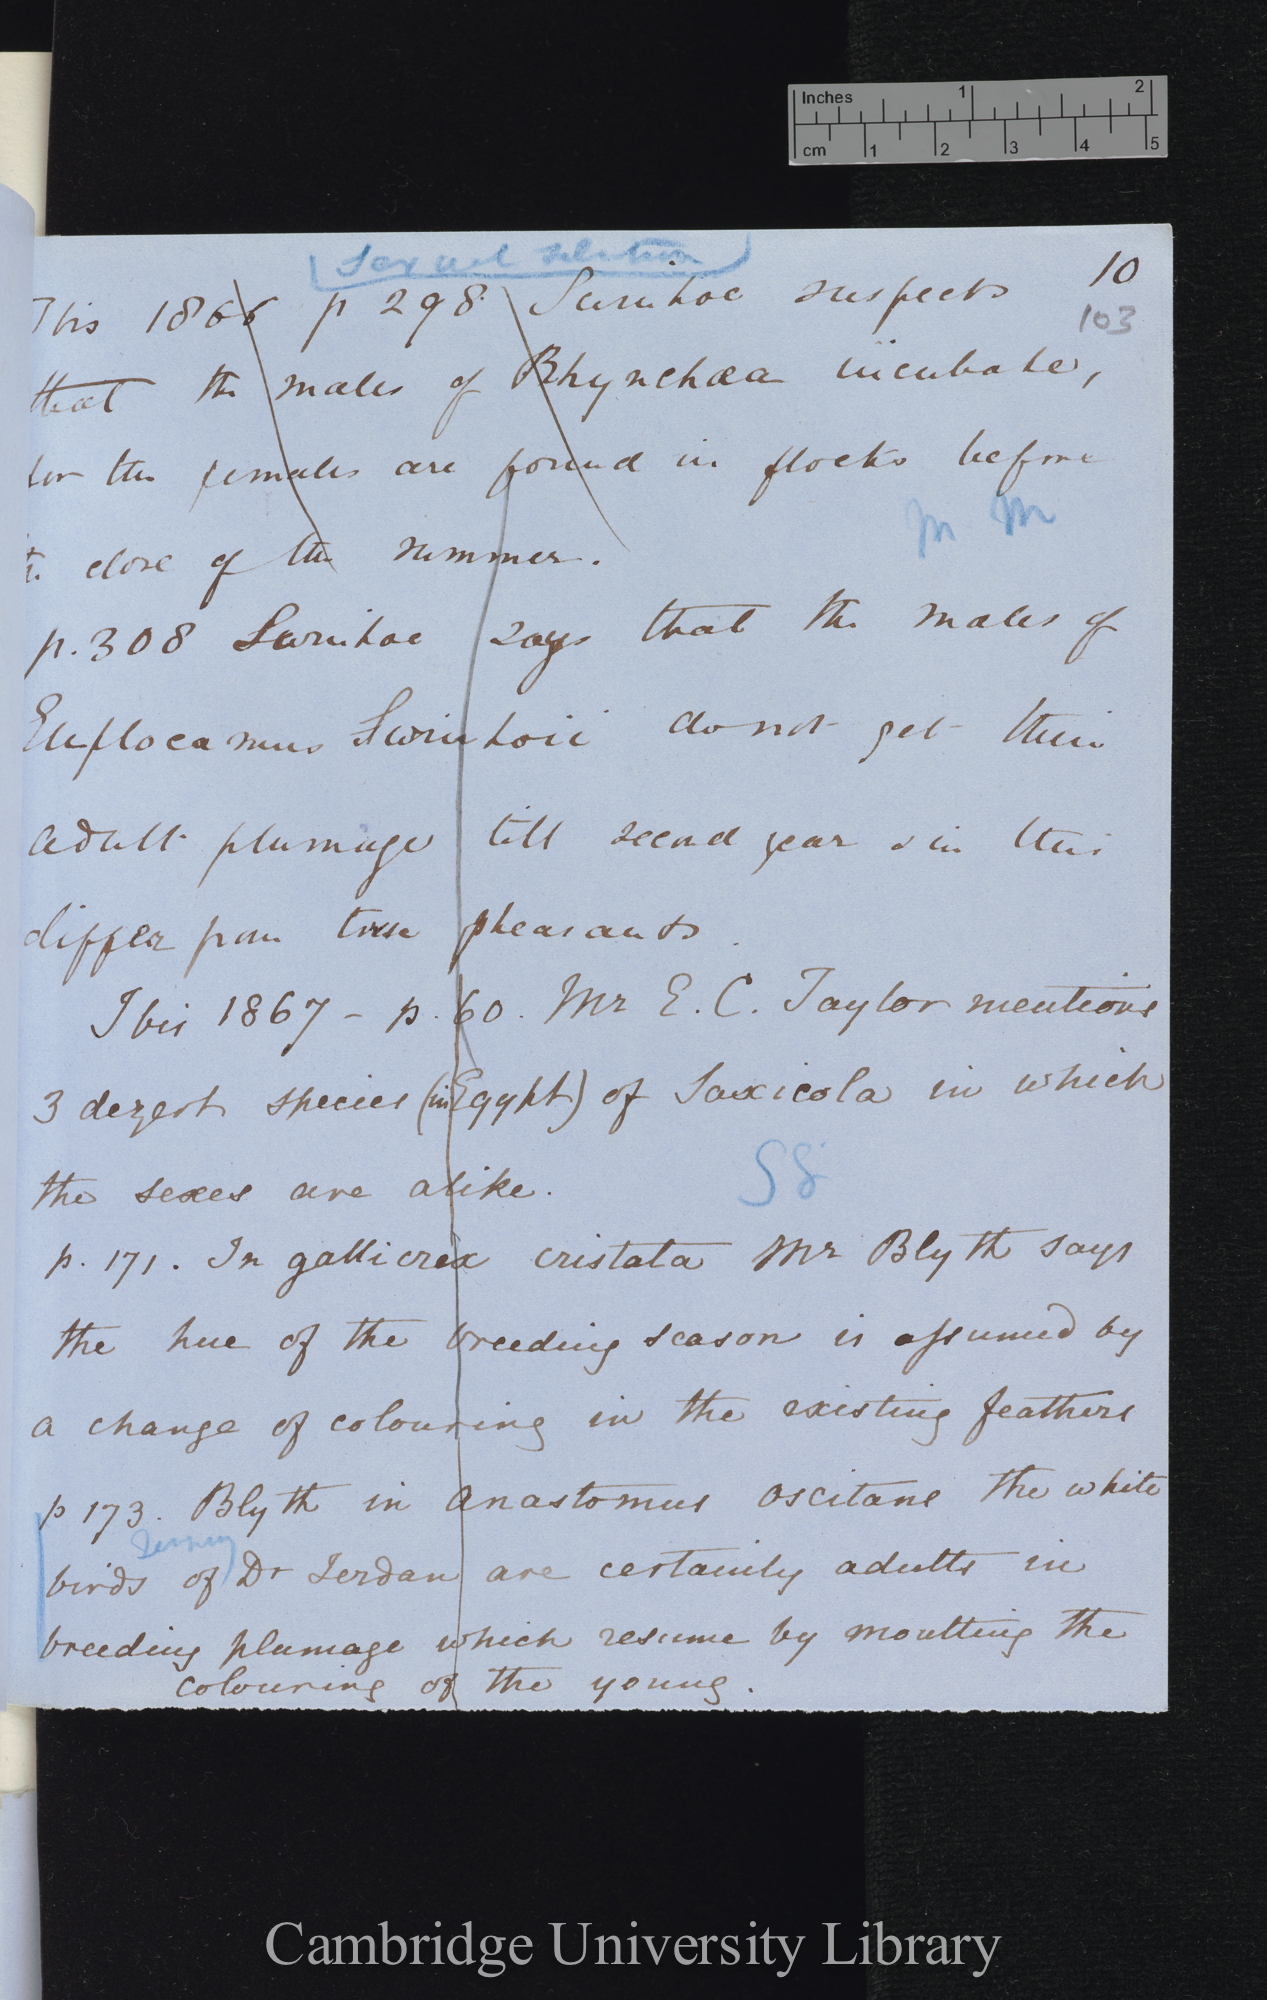 Inches 1 2
cm 1 2 3 4 5
Sexual selection
10
Ibis 1866 p 298 Swinhoe suspects
103
that the males of Rhynchæa incubate,
for the females are found in flocks before
the close of the summer.
M M
p. 308 Swinhoe says that the males of
Euplocamus Swinhoii do not get their
adult plumage till second year & in this
differ from true pheasants.
Ibis 1867 - p. 60. Mr E. C. Taylor mentions
3 dezert species (in Egypt) of Saxicola in which
the sexes are alike.
p. 171. In gallicrex cristata Mr Blyth says
the hue of the breeding season is assumed by
a change of colouring in the existing feathers
p 173. Blyth in Anastomus oscitans the white
birds of Dr Jerdan are certainly adults in
breeding plumage which resume by moulting the
colouring of the young.
Cambridge University Library